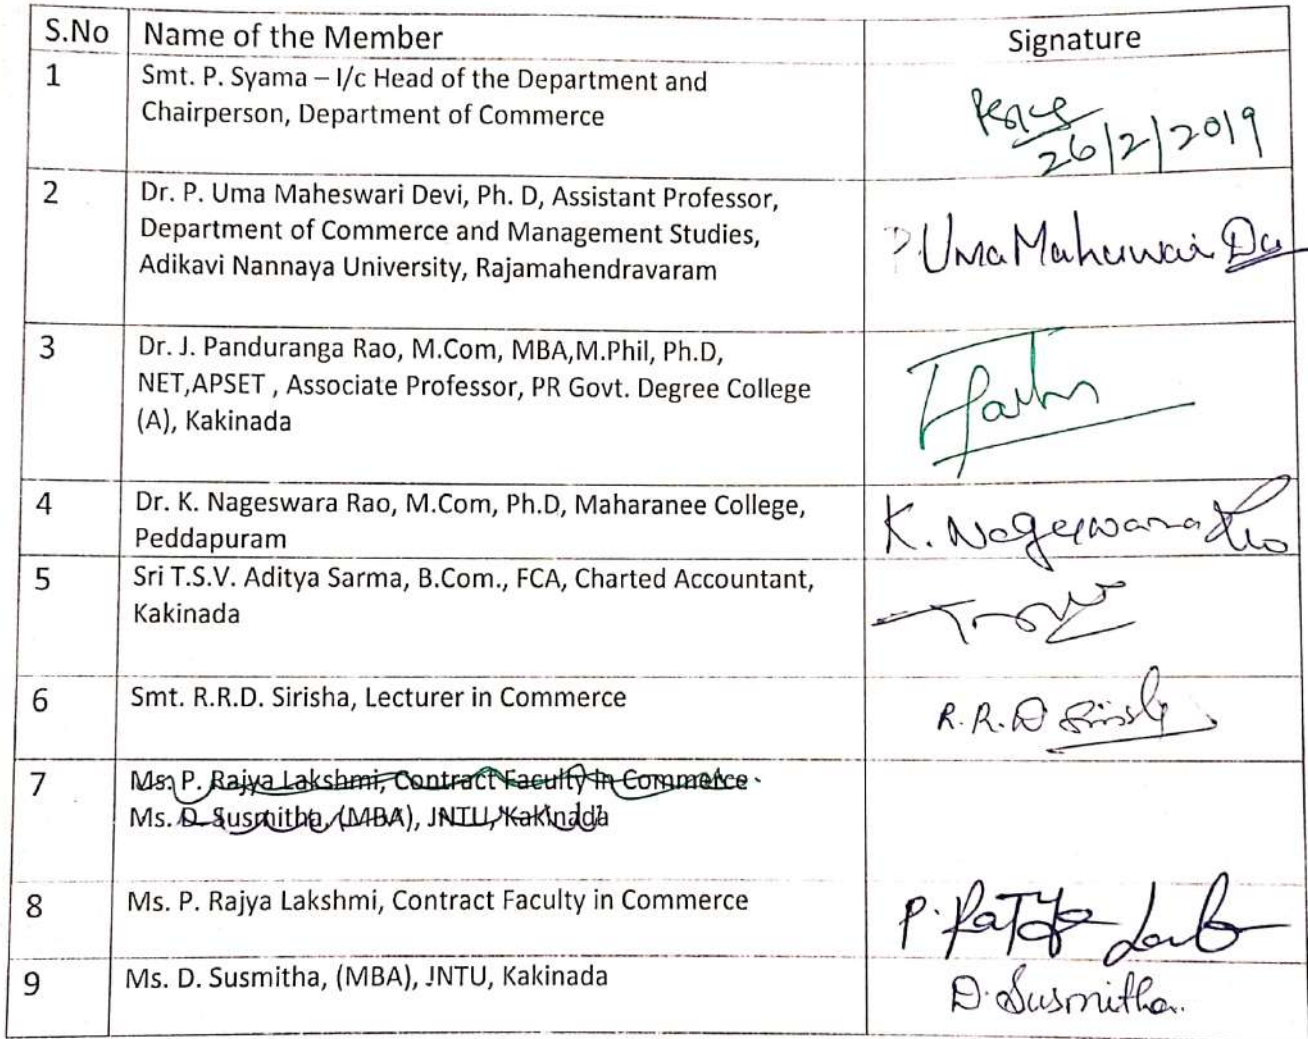 S.No Name of the Member Signature
1 Smt. P. Syama – I/c Head of the Department and
Chairperson, Department of Commerce
26/2/2019
2 Dr. P. Uma Maheswari Devi, Ph. D, Assistant Professor,
Department of Commerce and Management Studies,
Adikavi Nannaya University, Rajamahendravaram
P. Uma Maheswari Devi
3 Dr. J. Panduranga Rao, M.Com, MBA,M.Phil, Ph.D,
NET,APSET , Associate Professor, PR Govt. Degree College
(A), Kakinada
4 Dr. K. Nageswara Rao, M.Com, Ph.D, Maharanee College,
Peddapuram
K. Nageswara Rao
5 Sri T.S.V. Aditya Sarma, B.Com., FCA, Charted Accountant,
Kakinada
6 Smt. R.R.D. Sirisha, Lecturer in Commerce
R.R.D Sirisha
7 Ms. P. Rajya Lakshmi, Contract Faculty in Commerce
Ms. D Susmitha, (MBA), JNTU, Kakinada
8 Ms. P. Rajya Lakshmi, Contract Faculty in Commerce
P. Rajya
9 Ms. D. Susmitha, (MBA), JNTU, Kakinada
D. Susmitha.